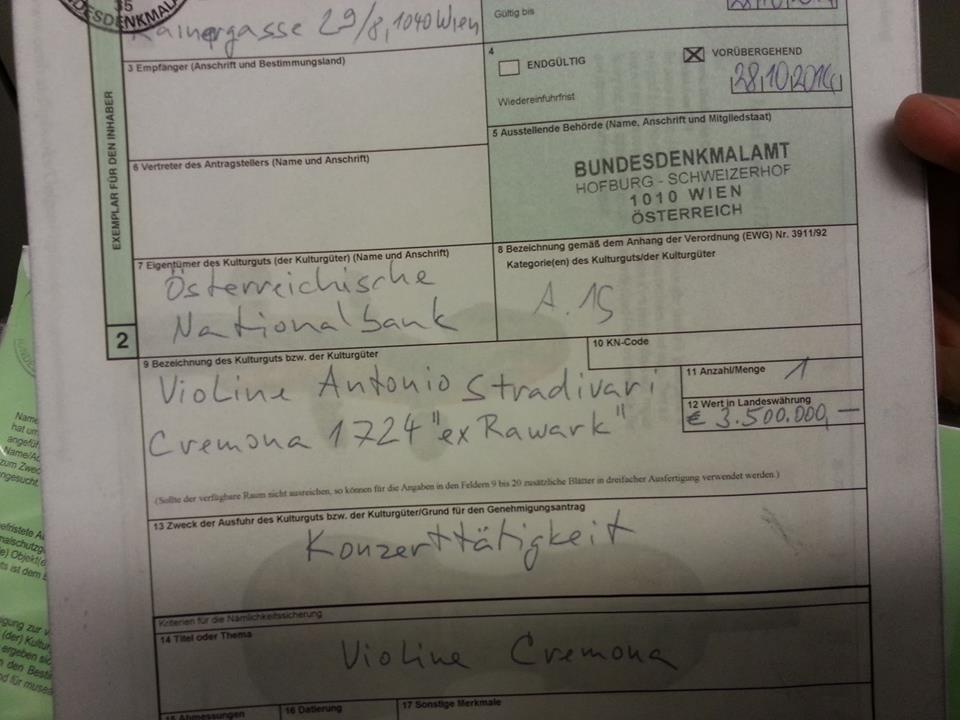 35
BUNDESDENKMALA
Rainergasse 29/8, 1040 Wien
Gültig bis
3 Empfänger (Anschrift und Bestimmungsland)
4
ENDGÜLTIG
VORÜBERGEHEND
28.10.2014
Wiedereinfuhrfrist
5 Ausstellende Behörde (Name, Anschrift und Mitgliedstaat)
BUNDESDENKMALAMT
HOFBURG - SCHWEIZERHOF
1010 WIEN
ÖSTERREICH
6 Vertreter des Antragstellers (Name und Anschrift)
EXEMPLAR FÜR DEN INHABER
2
7 Eigentümer des Kulturguts (der Kulturgüter) (Name und Anschrift)
Österreichische
Nationalbank
8 Bezeichnung gemäß dem Anhang der Verordnung (EWG) Nr. 3911/92
Kategorie(en) des Kulturguts/der Kulturgüter
A. 15
9 Bezeichnung des Kulturguts bzw. der Kulturgüter
Violine Antonio Stradivari
Cremona 1724 "ex Rawark"
10 KN-Code
11 Anzahl/Menge 1
12 Wert in Landeswährung
€ 3.500.000,—
(Sollte der verfügbare Raum nicht ausreichen, so können für die Angaben in den Feldern 9 bis 20 zusätzliche Blätter in dreifacher Ausfertigung verwendet werden.)
13 Zweck der Ausfuhr des Kulturguts bzw. der Kulturgüter/Grund für den Genehmigungsantrag
Konzerttätigkeit
Kriterien für die Nämlichkeitssicherung
14 Titel oder Thema
Violine Cremona
15 Abmessungen
16 Datierung
17 Sonstige Merkmale